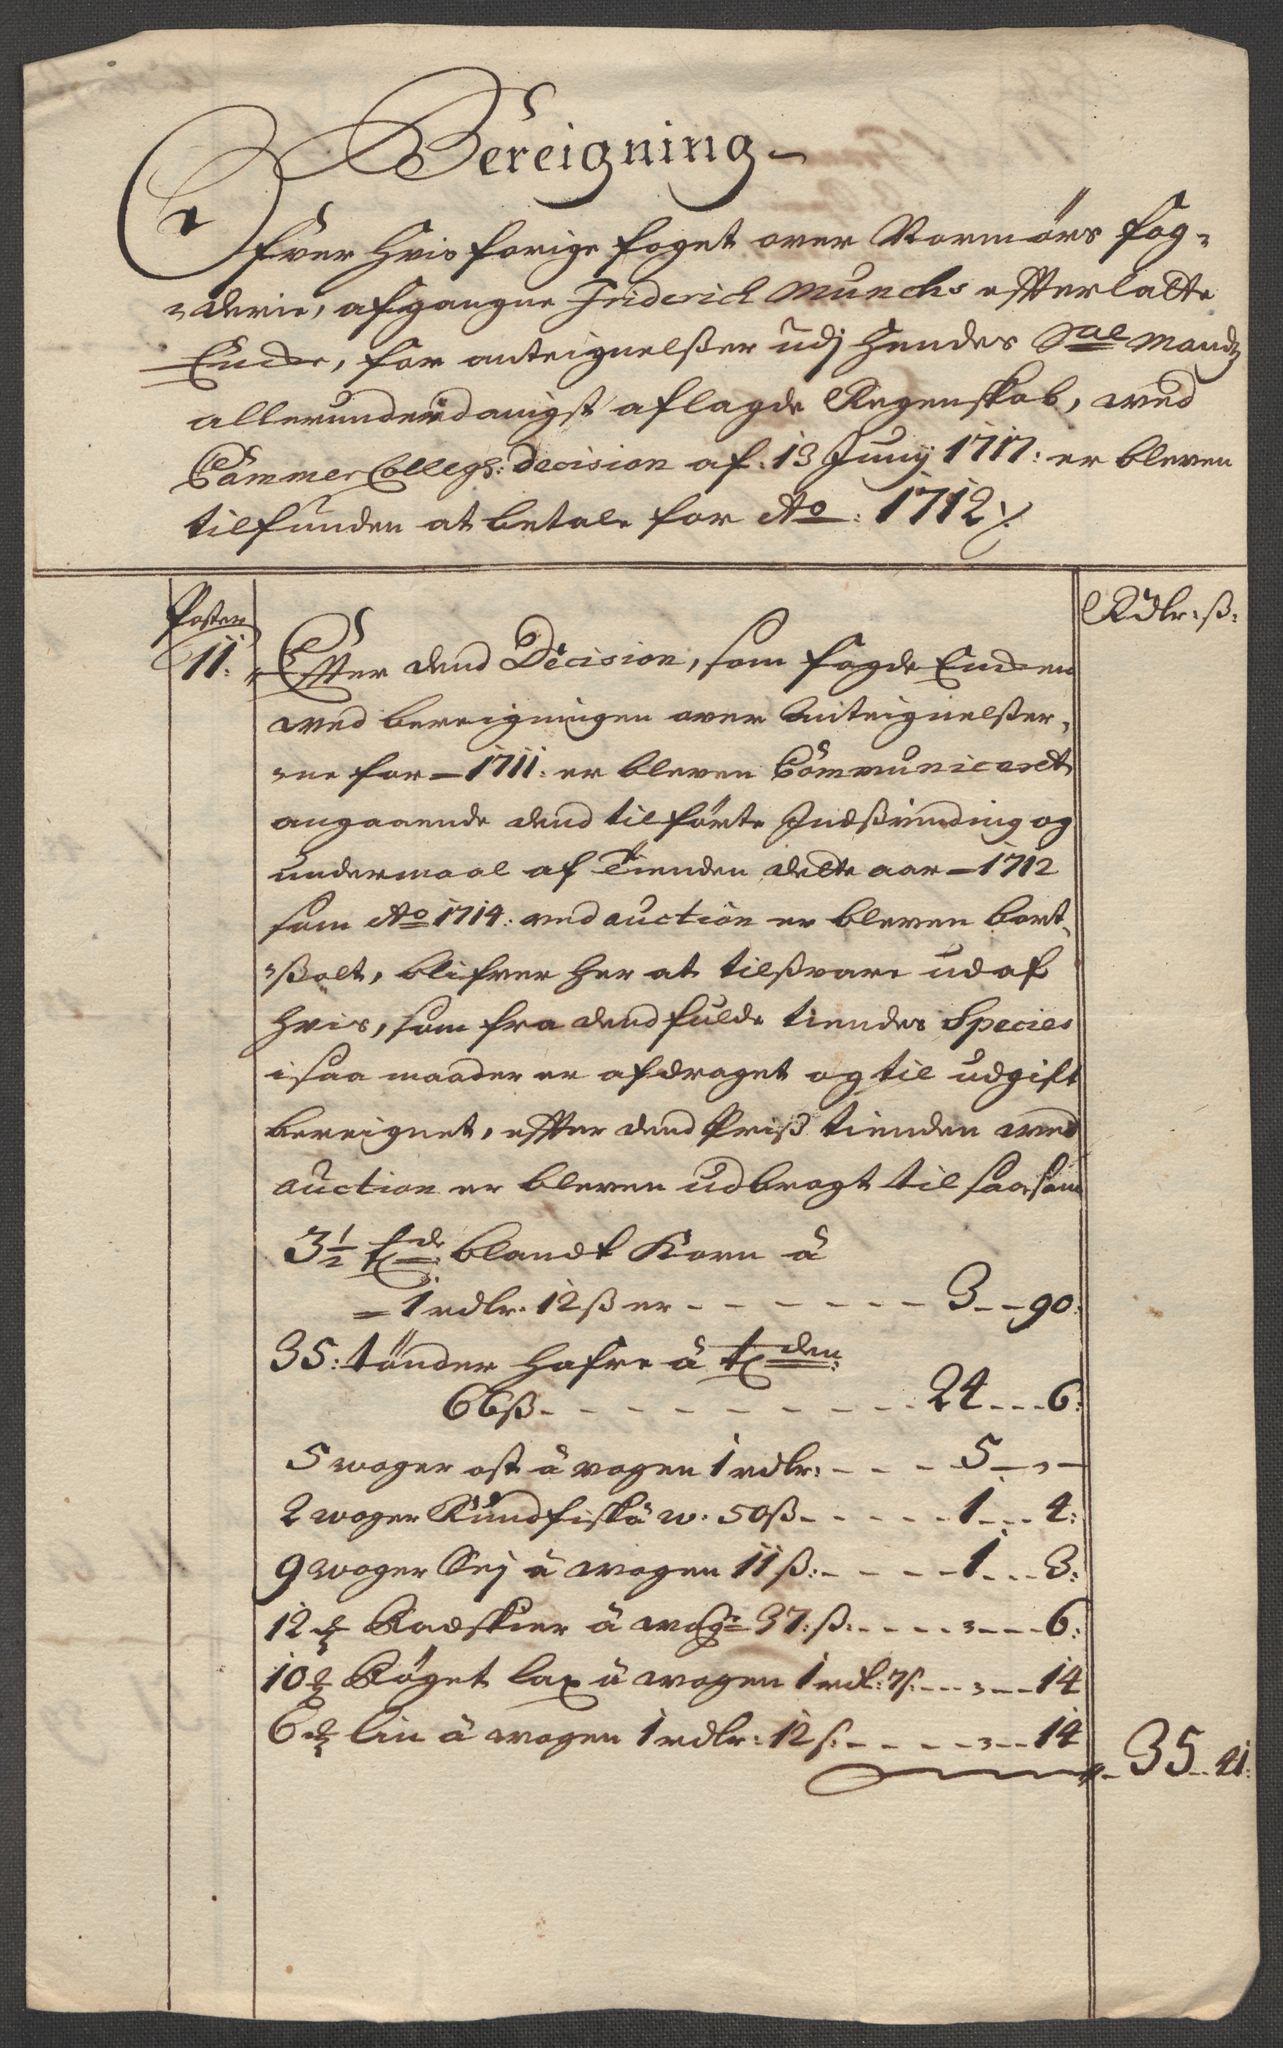 Bereigning
Ofver hvis forige foget over Normörs fog-
derie, afgangne Friderich Munchs efterlatte
Encke, for anteignelßer udj hendes Sal Mands
allerunderdanigst aflagde Regenskab, ved
Cammer Collegs: Decision af: 13 Junij 1717: er bleven
tilfunden at betale for Ao: 1712 ./.
Poster
Rdlr: ß:
11: Efter dend Decision, som fogde Encken
ved bereigningen over Anteignelßer-
ne for – 1711: er bleven Communiceret
angaaende dend tilförte Indßvinding og
undermaal af Tienden dette aar – 1712
som Ao 1714: ved auction er bleven bort-
ßolt, blifver her at tilßvare ud af
hvis, som fra dend fulde tiendes Species
i saa maader er afdraget og til udgift
bereignet, efter dend Priß tienden ved
auction er bleven udbragt til saasom
3½ tde blandt Korn á
1 rdlr: 12 ß er - - - - - - 3 - - 90:
35: tönder hafre á tden:
66 ß - - - - - - - - - 24 - - - 6:
5 voger ost á vogen 1 rdlr: - - - - 5 - -
2 voger Rundfisk á w: 50 ß - - - - - 1 - - - 4:
9 voger Sej á vogen 11 ß: - - - - 1 - - - 3:
12 ℔ Radskier á wog: 37: ß: - - - - - - - 6:
10 ℔ Röget lax á vogen 1 rdl: 7 ß: - - - - - 14
6 ℔ lin á vogen 1 rdlr: 12 ß: - - - - - - - 14
35 - 41: